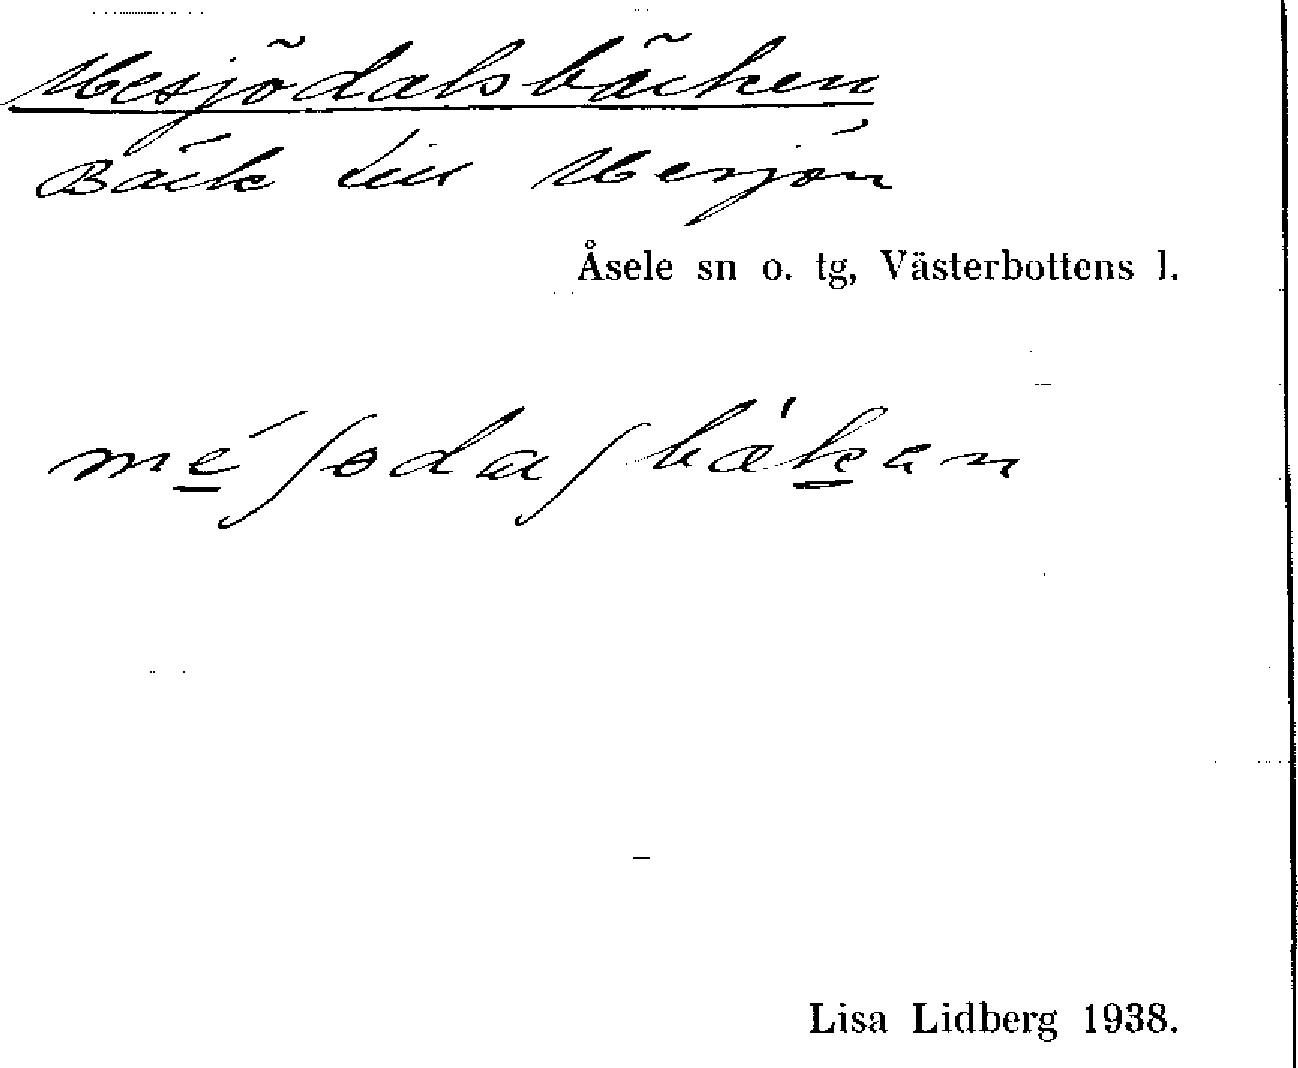 Mesjödalsbäcken
Bäck till Mesjön
Åsele sn o. tg, Västerbottens l.
mé̱ʃodaʃbæ'ḵen
Lisa Lidberg 1938.